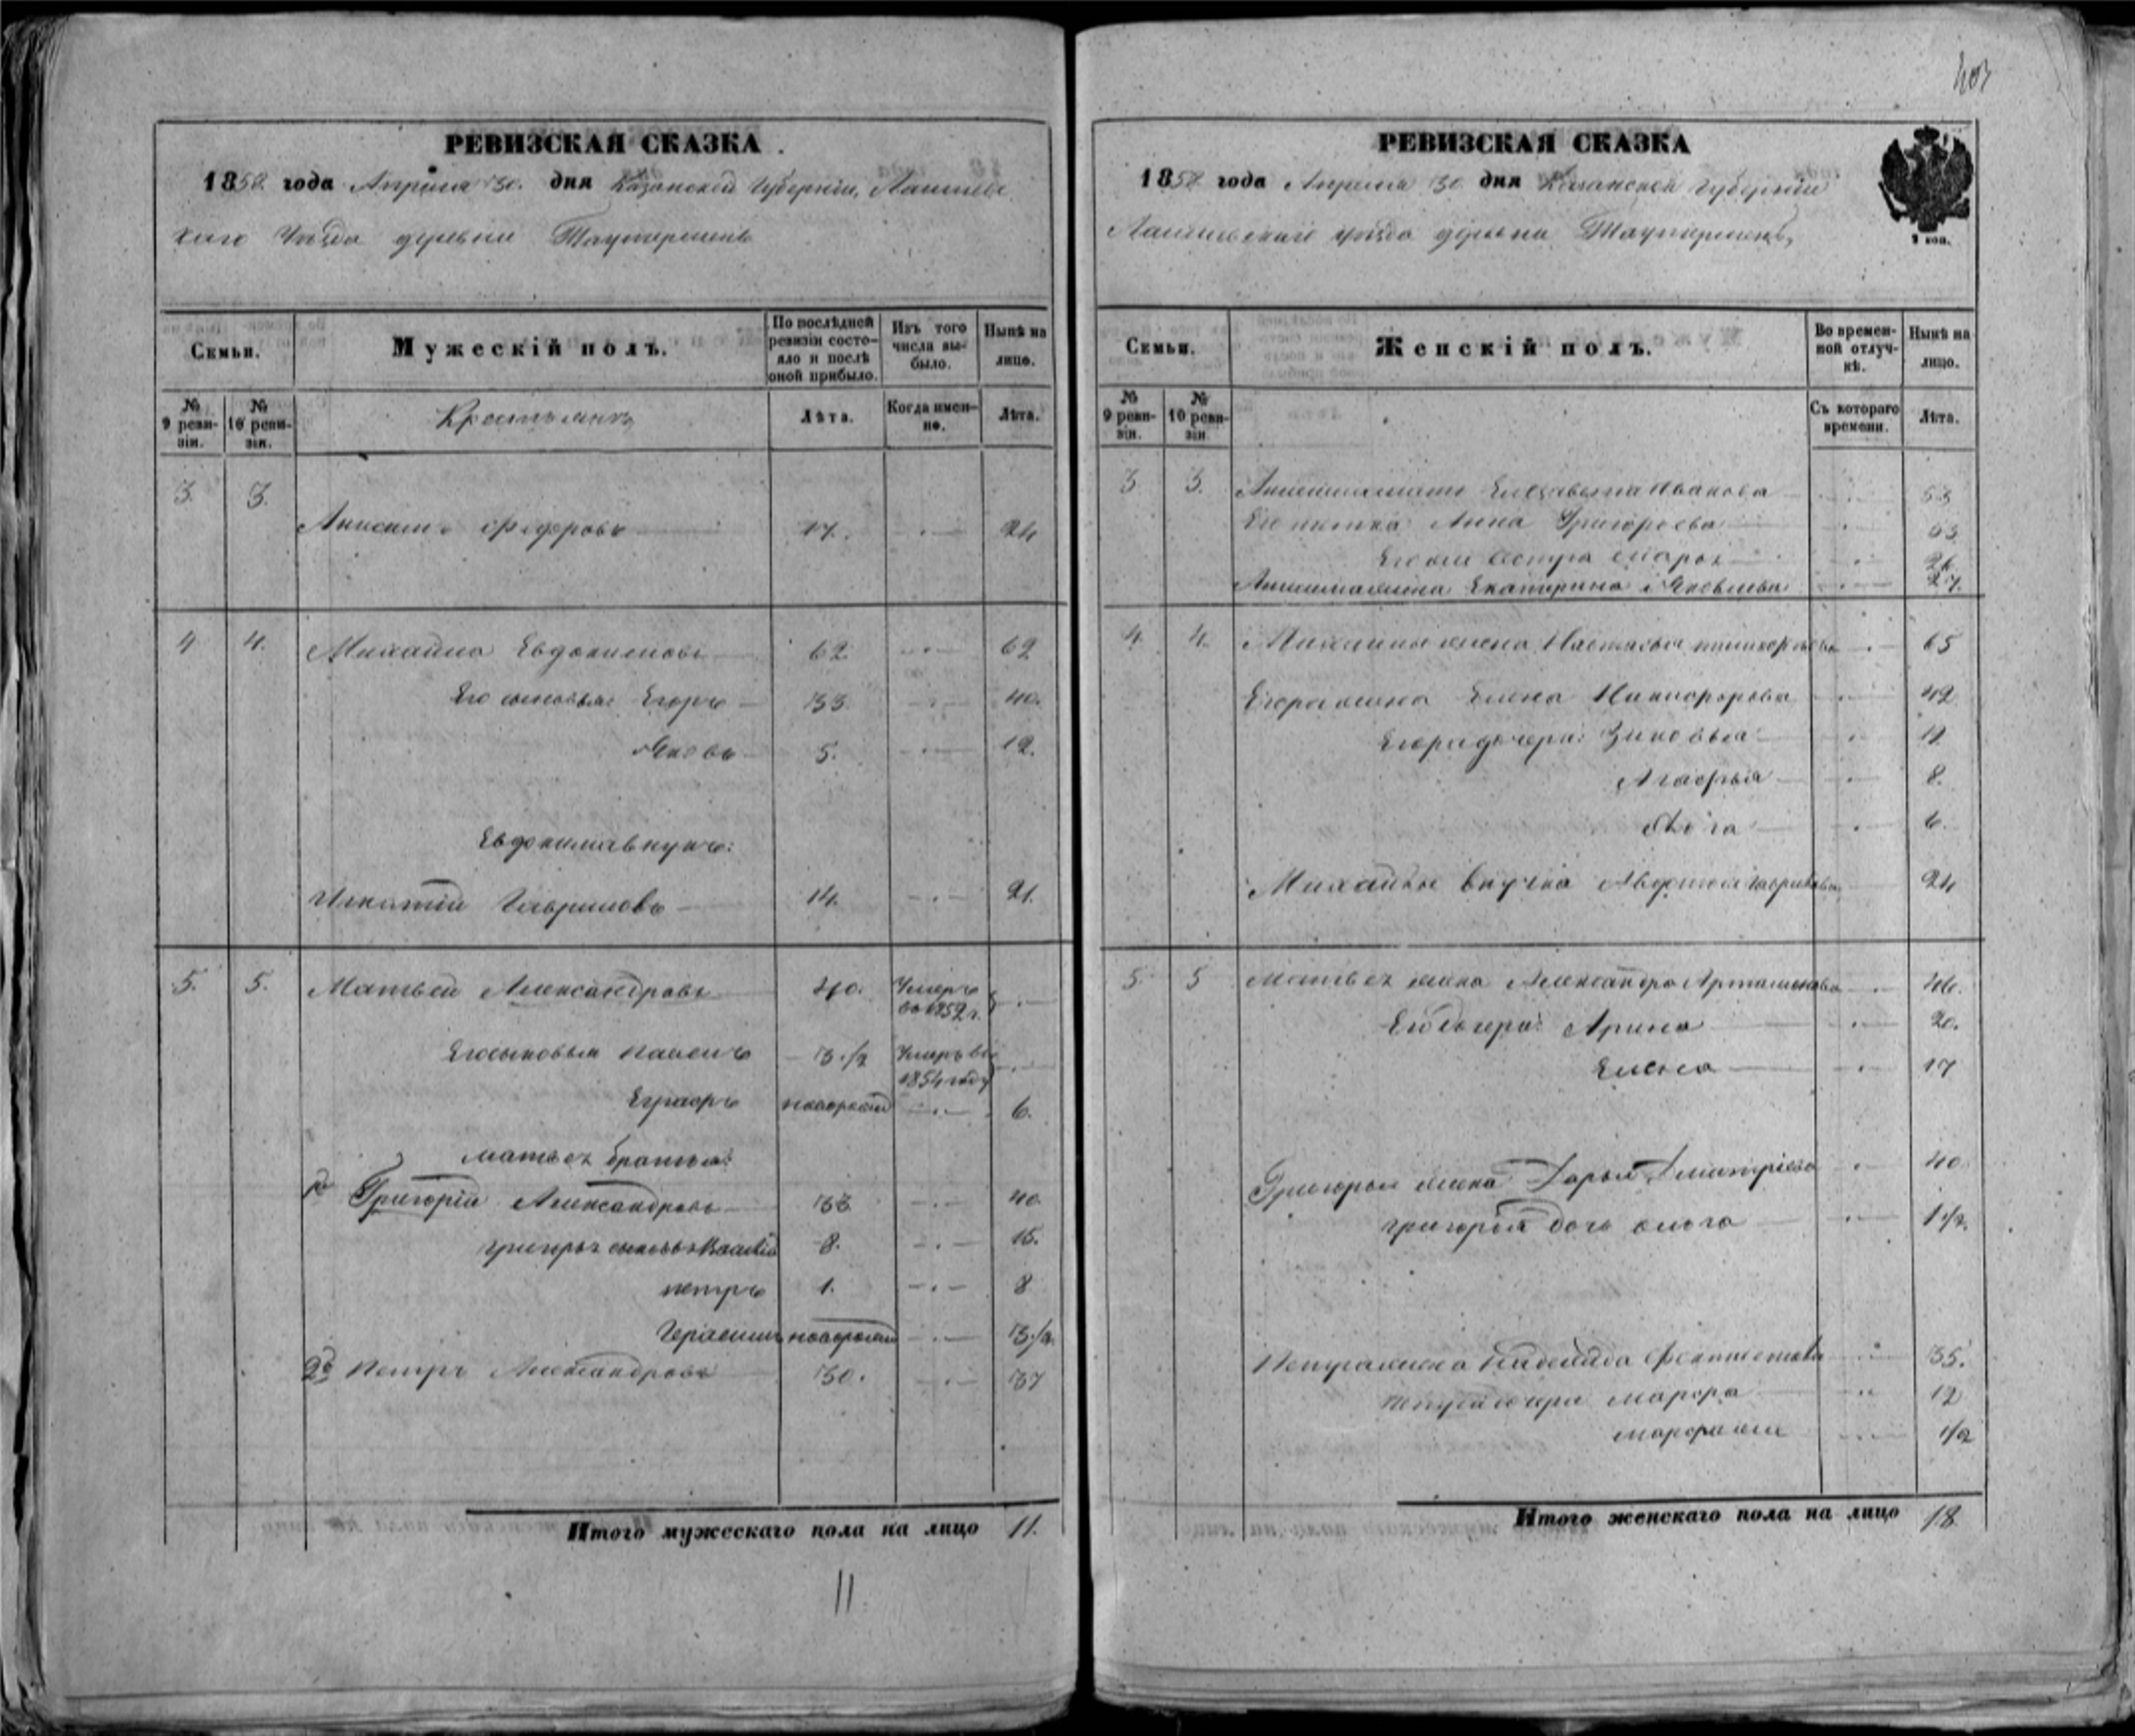 403
РЕВИЗСКАЯ СКАЗКА
1858 года Апреля 30. дня Казанской Губерніи, Лаишевс
каго Уѣзда деревни Таутермень
Семьи.
Мужескій полъ.
По послѣдней ревизіи состояло и послѣ оной прибыло.
Изъ того числа выбыло.
Нынѣ на лице.
№ 9 ревизіи.
№ 10 ревизіи.
Крестьянъ
Лѣта.
Когда именно.
Лѣта.
3. 3.
Анисимъ Федоровъ 17. 24
4 4. Михайла Евдокимовъ 62 62
Его сыновья: Егоръ 33 40.
Яковъ 5. 12.
Евдокима внукъ:
Игнатій Гавриловъ 14. 21.
5. 5. Матвей Александровъ 40. Умеръ
во 1852 г.
Его сыновья Павелъ 3 1/2 Умеръ въ
1854 году
Еграфъ новорожд 6.
Матвея братья:
1й Григорій Александровъ 33 40
Григорья сыновья Василій 8. 15.
Петръ 1. 8
Герасимъ новорожд 3 1/2
2й Петръ Александровъ 30. 37
Итого мужескаго пола на лицо 11.
11
РЕВИЗСКАЯ СКАЗКА
1858 года Апреля 30 дня Казанской Губерніи
Лаишевскаго уѣзда деревни Таутермень,
1 коп.
Семьи.
Женскій полъ.
Во временной отлучкѣ.
Нынѣ на лицо.
№ 9 ревизіи.
№ 10 ревизіи
Съ котораго времени.
Лѣта.
3 3. Елизавета Иванова 53
Его тетка Анна Григорьева 63
сестра 26
Анисима жена Екатерина Яковлева 27.
4. 4. Михайлы жена Настасья 65
Егора жена Елена Никифорова 42
Егора дочери: Зиновья 11
Агафья 8.
6.
Михайлы внучка Авдотья Гаврилова 24
5. 5 Матвея жена Александра Артамонова 46.
Его дочери: Арина 20.
Елена 17
Григорья жена Дарья Дмитріева 40
Григорья дочь 1 1/2.
Петра жена 35.
Петра дочери Марфа 12
Марфа же 1/2
Итого женскаго пола на лицо 18.